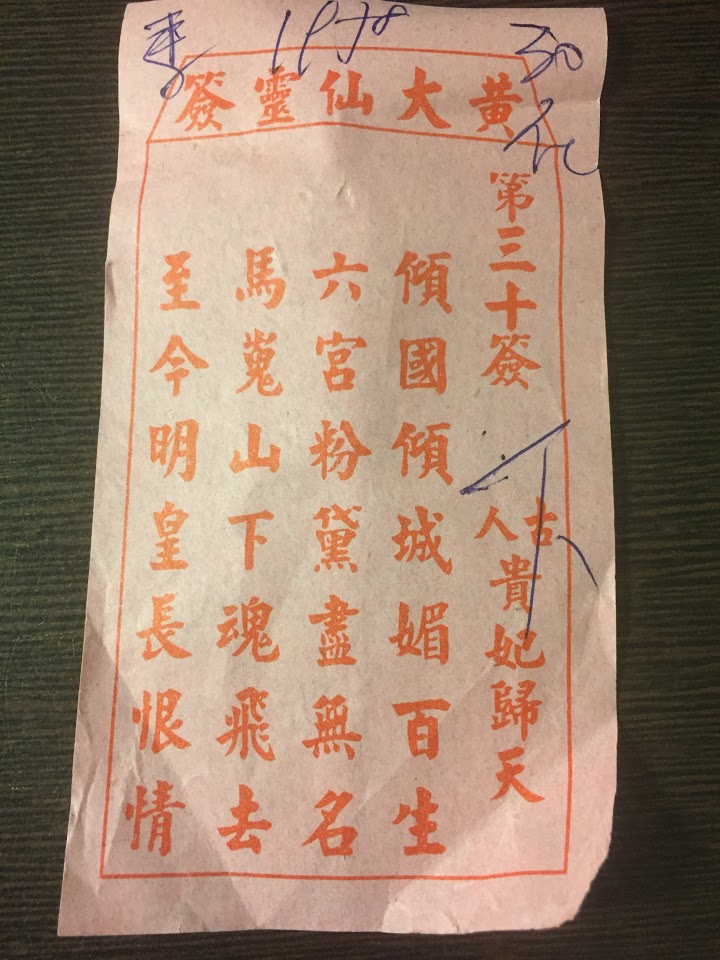 黃大仙靈簽
第三十簽
古人
貴妃歸天
傾國傾城媚百生
六宮粉黛盡無名
馬嵬山下魂飛去
至今明皇長恨情
30